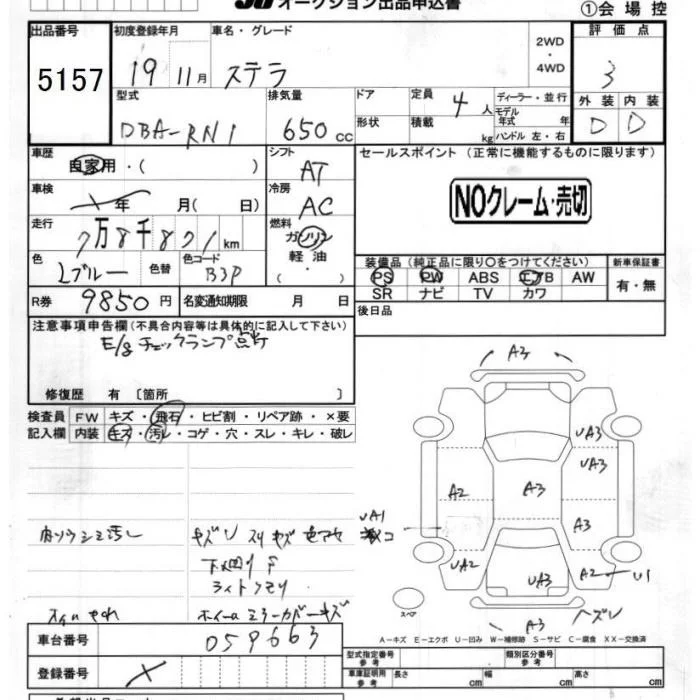 オークション出品申込書
①会場控
出品番号 初度登録年月 車名・グレード 2WD・4WD 評価点
5157 19 11月 ステラ 3
型式 排気量 ドア 定員 4人 ディーラー・並行 外装 内装
形状 積載 kg モデル年式 年 ハンドル 左・右
DBA-RN1 650cc D D
車歴 自家用・( ) シフト AT セールスポイント (正常に機能するものに限ります)
車検 年 月( 日) 冷房 AC NOクレーム・売切
走行 7万8千821km 燃料 ガソリン 軽油・( )
装備品(純正品に限り○をつけてください) 新車保証書
色 Lブルー 色替 色コード B3P PS PW ABS エアB AW 有・無
SR ナビ TV カワ
R券 9850円 名変通知期限 月 日 後日品
注意事項申告欄(不具合内容等は具体的に記入して下さい)
E/gチェックランプ点灯
修復歴 有〔箇所 〕
検査員 FW キズ・飛石・ヒビ割・リペア跡・×要
記入欄 内装 キズ・汚レ・コゲ・穴・スレ・キレ・破レ
A3
UA3
UA3
A2 A3
A3
UA1
UA2 UA3 A2 U1
スペア
A3
A-キズ E-エクボ U-凹み W-補修跡 S-サビ C-腐食 XX-交換済
車台番号 059663
型式指定番号 参考 類別区分番号 参考
登録番号
車庫証明用 参考 長さ cm 幅 cm 高さ cm